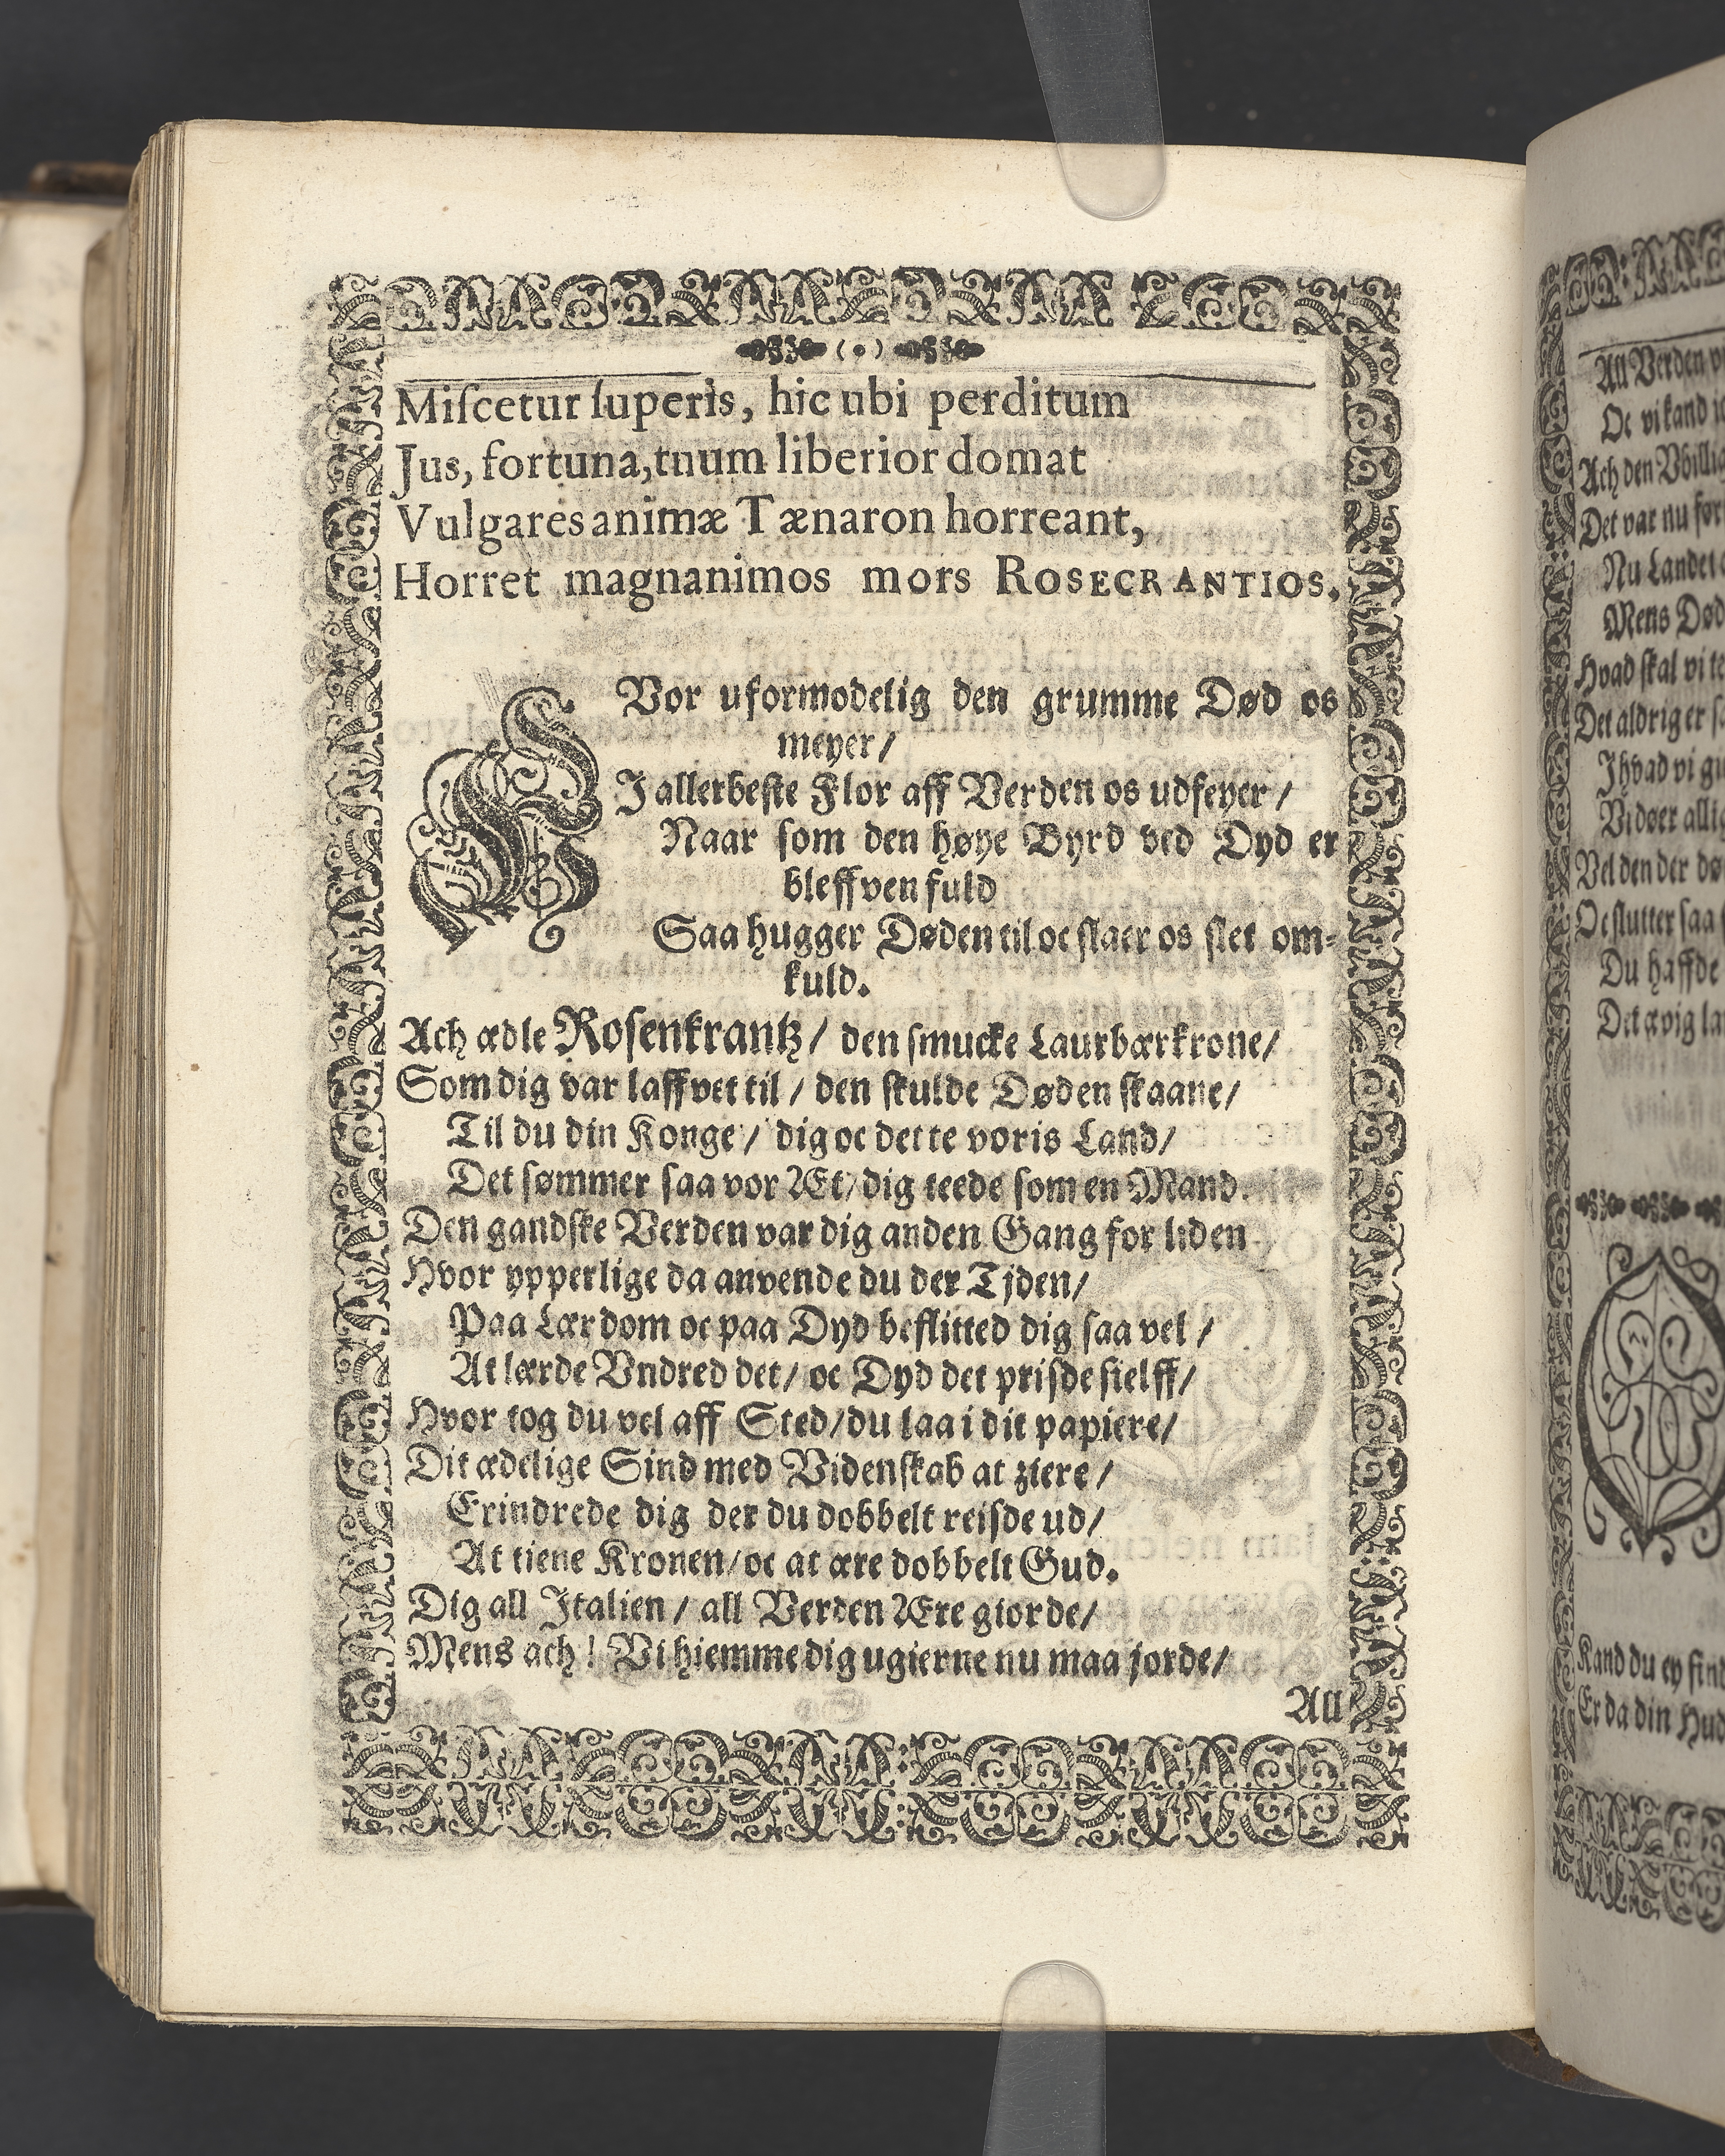 (•)
Miſcetur ſuperis, hic ubi perditum
Jus, fortuna, tnum liberior domat
Vulgares animæ Tænaron horreant,
Horret magnanimos mors ROSECRANTIOS.
HVor uformodelig den grumme Død os
meyer/
I allerbeſte Flor aff Verden os udfeyer/
Naar ſom den høye Byrd ved Dyd er
bleffven fuld
Saa hugger Døden til oc ſlaer os ſlet om-
kuld.
Ach ædle Roſenkrantz/ den ſmucke Laurbærkrone/
Som dig var laffvet til/ den ſkulde Døden ſkaane/
Til du din Konge/ dig oc dette voris Land/
Det ſømmer ſaa vor Æt/ dig teede ſom en Mand.
Den gandſke Verden var dig anden Gang for liden
Hvor ypperlige da anvende du der Tjden/
Paa Lærdom oc paa Dyd beflitted dig ſaa vel/
At lærde Vndred det/ oc Dyd det priſde ſielff/
Hvor tog du vel aff Sted/ du laa i dit papiere/
Dit ædelige Sind med Videnſkab at ziere/
Erindrede dig der du dobbelt reiſde ud/
At tiene Kronen/ oc at ære dobbelt Gud.
Dig all Italien/ all Verden Ære giorde/
Mens ach! Vi hiemme dig ugierne nu maa jorde/
All
All Verden
Oc vi kand
Ach den
Det var nu
Nu Landet
Mens Død
Hvad ſkal vi
Det aldrig er
Ihvad vi
Vel den der
Oc ſlutter ſaa
Du haffde
Det ævig
Kand du ey
Er da din